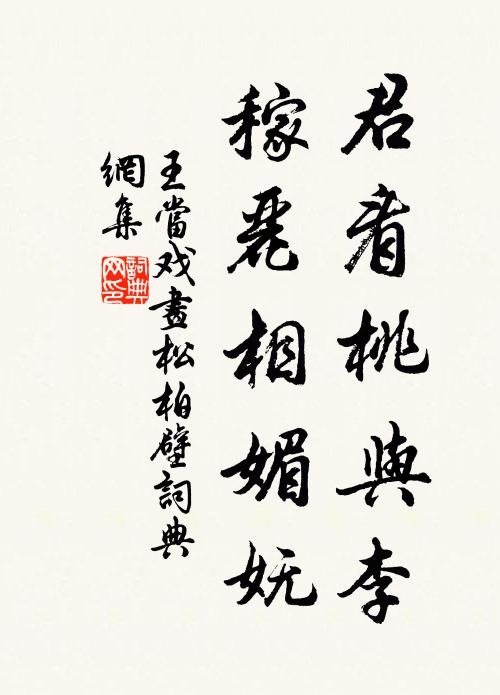 君看桃與李
稼麗相媚妩
王當戏畫松柏壁詞典
網集
詞典
网印